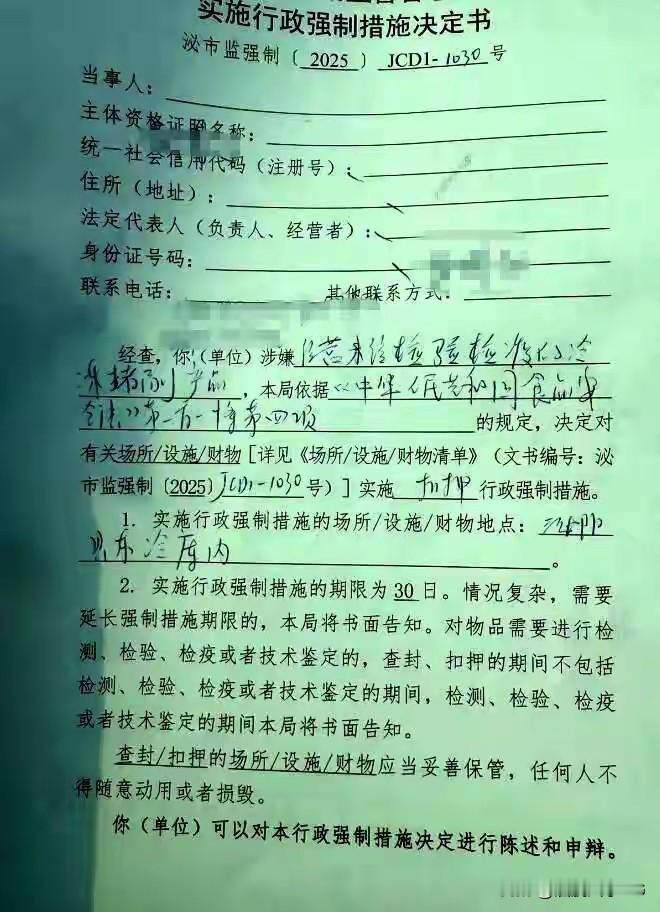 实施行政强制措施决定书
泌市监强制〔2025〕JCD1-1030号
当事人：
主体资格证照名称：
统一社会信用代码（注册号）：
住所（地址）：
法定代表人（负责人、经营者）：
身份证号码：
联系电话： 其他联系方式：
经查，你（单位）涉嫌经营未经检验检疫的冷
冻猪副产品，本局依据《中华人民共和国食品安
全法》第一百一十条第四项的规定，决定对
有关场所/设施/财物[详见《场所/设施/财物清单》（文书编号：泌
市监强制〔2025〕JCD1-1030号）]实施扣押行政强制措施。
1. 实施行政强制措施的场所/设施/财物地点：
冷库内。
2. 实施行政强制措施的期限为30日。情况复杂，需要
延长强制措施期限的，本局将书面告知。对物品需要进行检
测、检验、检疫或者技术鉴定的，查封、扣押的期间不包括
检测、检验、检疫或者技术鉴定的期间，检测、检验、检疫
或者技术鉴定的期间本局将书面告知。
查封/扣押的场所/设施/财物应当妥善保管，任何人不
得随意动用或者损毁。
你（单位）可以对本行政强制措施决定进行陈述和申辩。